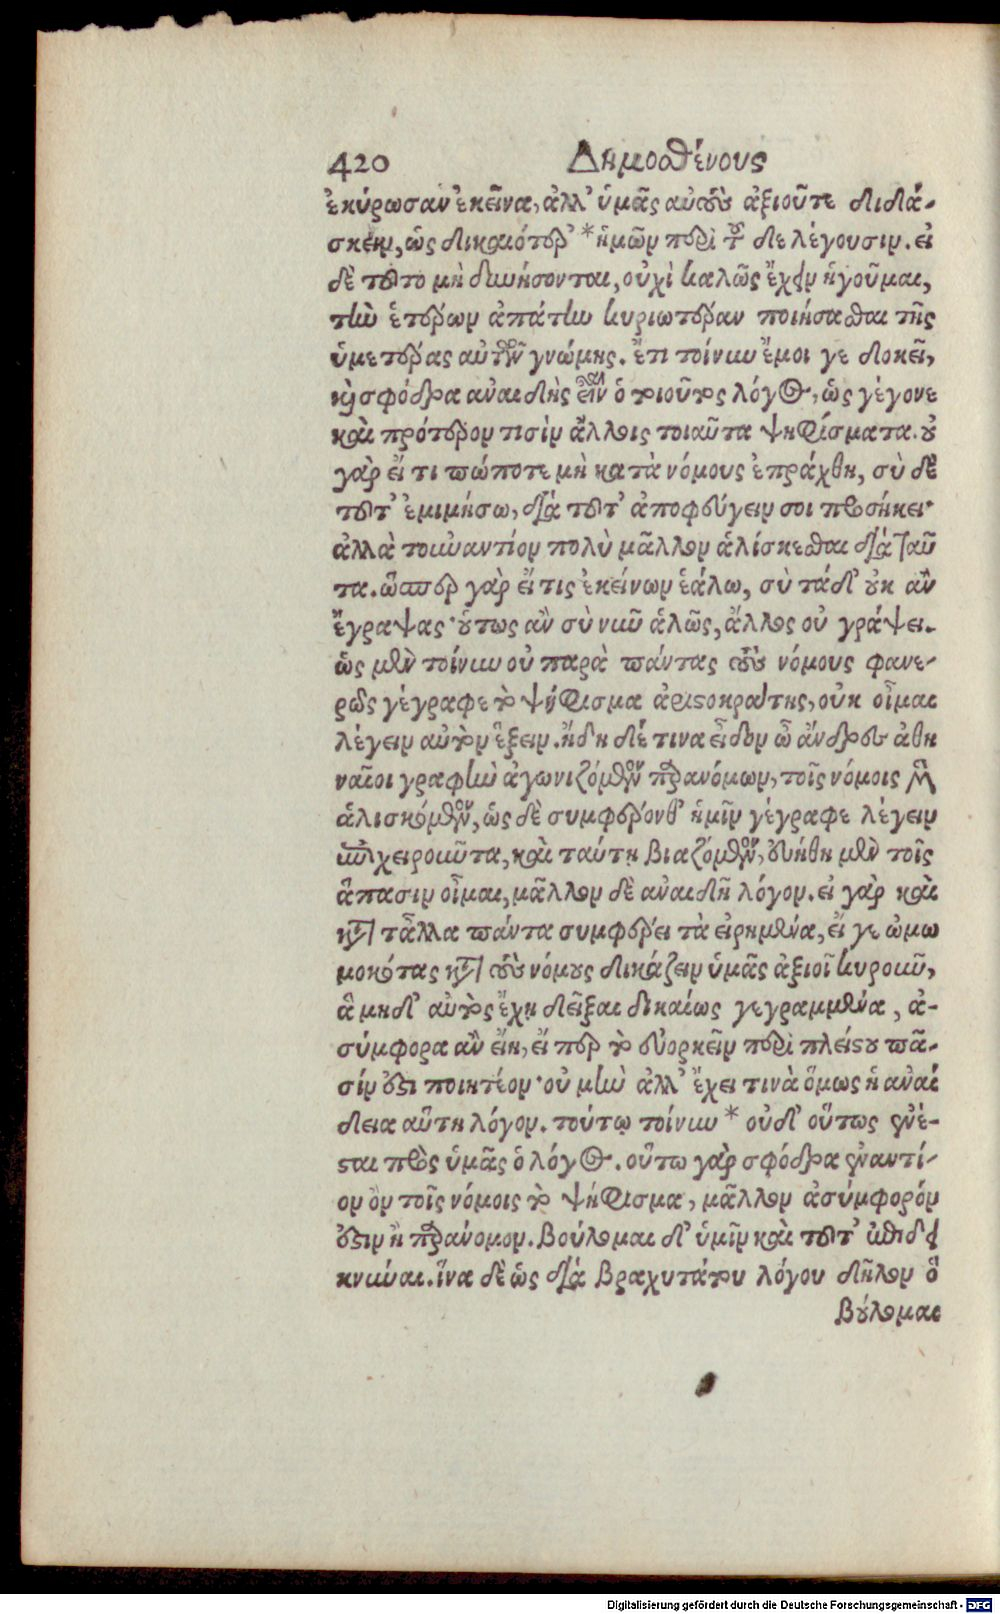 420 Δημοσθένους
ἐκύρωσαν ἐκεῖνα, ἀλλ' ὑμᾶς αὐτοὺς ἀξιοῦτε διδά-
σκειν, ὡς δικαιότερ' * ἡμῶν περὶ τοῦδε λέγουσιν. εἰ
δὲ τοῦτο μὴ δυνήσονται, οὐχὶ καλῶς ἔχειν ἡγοῦμαι,
τὴν ἑτέρων ἀπάτην κυριωτέραν ποιήσασθαι τῆς
ὑμετέρας αὐτῶν γνώμης. ἔτι τοίνυν ἔμοι γε δοκεῖ,
καὶ σφόδρα ἀναιδὴς εἶναι ὁ τοιοῦτος λόγος, ὡς γέγονε
καὶ πρότερον τισὶν ἄλλοις τοιαῦτα ψηφίσματα. οὐ
γὰρ εἴ τι πώποτε μὴ κατὰ νόμους ἐπράχθη, σὺ δὲ
τοῦτ' ἐμιμήσω, διὰ τοῦτ' ἀποφεύγειν σοι προσήκει·
ἀλλὰ τοὐναντίον πολὺ μᾶλλον ἁλίσκεσθαι διὰ ταῦ
τα. ὥσπερ γὰρ εἴ τις ἐκείνων ἑάλω, σὺ τάδ' οὐκ ἂν
ἔγραψας· οὕτως ἂν σὺ νῦν ἁλῷς, ἄλλος οὐ γράψει.
ὡς μὲν τοίνυν οὐ παρὰ πάντας τοὺς νόμους φανε-
ρῶς γέγραφε τὸ ψήφισμα ἀριστοκράτης, οὐκ οἶμαι
λέγειν αὐτὸν ἕξειν. ἤδη δέ τινα εἶδον ὦ ἄνδρες ἀθη
ναῖοι γραφὴν ἀγωνιζόμενον παρανόμων, τοῖς νόμοις μὲν
ἁλισκόμενον, ὡς δὲ συμφέρονθ' ἡμῖν γέγραφε λέγειν
ἐπιχειροῦντα, καὶ ταύτῃ βιαζόμενον, εὐήθη μὲν τοῖς
ἅπασιν οἶμαι, μᾶλλον δὲ ἀναιδῆ λόγον. εἰ γὰρ καὶ
κατὰ τἆλλα πάντα συμφέρει τὰ εἰρημένα, εἴ γε ὠμω
μοκότας κατὰ τοὺς νόμους δικάζειν ὑμᾶς ἀξιοῖ κυροῦν,
ἃ μηδ' αὐτὸς ἔχῃ δεῖξαι δικαίως γεγραμμένα, ἀ-
σύμφορα ἂν εἴη, εἴ περ τὸ εὐορκεῖν περὶ πλείστου πᾶ-
σίν ἐστι ποιητέον· οὐ μὴν ἀλλ' ἔχει τινὰ ὅμως ἡ ἀναί
δεια αὕτη λόγον. τούτῳ τοίνυν * οὐδ' οὕτως ἐνέ-
σται πρὸς ὑμᾶς ὁ λόγος. οὕτω γὰρ σφόδρα ἐναντί-
ον ὂν τοῖς νόμοις τὸ ψήφισμα, μᾶλλον ἀσύμφορόν
ἐστιν ἢ παράνομον. Βούλομαι δ' ὑμῖν καὶ τοῦτ' ἐπιδει
κνύναι. ἵνα δὲ ὡς διὰ βραχυτάτου λόγου δῆλον ὃ
βούλομαι
Digitalisierung gefördert durch die Deutsche Forschungsgemeinschaft - DFG